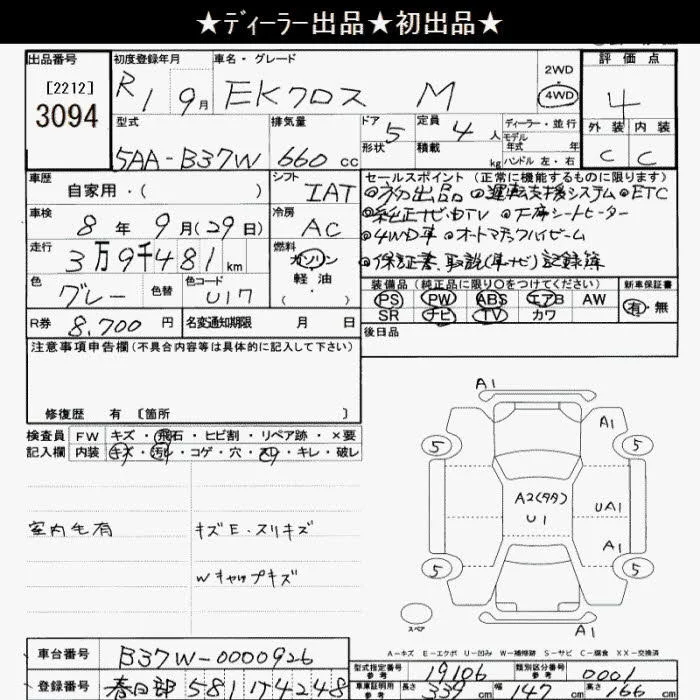 ★ディーラー出品★初出品★
出品番号 初度登録年月 車名・グレード 2WD 評価点
[2212] R1 9月 EKクロス M 4WD 4
3094
型式 排気量 ドア 5 定員 4人 ディーラー・並行 外装 内装
形状 積載 kg モデル年式 年式 ハンドル 左・右 C C
5AA-B37W 660cc
車歴 シフト セールスポイント(正常に機能するものに限ります)
自家用・( ) IAT ◎初出品 ◎運転支援システム ◎ETC
車検 8年9月(29日) 冷房 AC ◎純正ナビ・TV ◎下席シートヒーター
◎4WD車 ◎オートマチックハイビーム
走行 3万9千481km 燃料 ガソリン 軽油 ( ・ ) ◎保証書、取説(車ナビ)記録簿
色 グレー 色替 色コード U17 装備品(純正品に限り○をつけてください) 新車保証書
PS PW ABS エアB AW 有・無
SR ナビ TV カワ
R券 8,700円 名変通知期限 月 日 後日品
注意事項申告欄(不具合内容等は具体的に記入して下さい)
修復歴 有 [箇所 ]
検査員 FW キズ・飛石・ヒビ割・リペア跡・×要
記入欄 内装 キズ・汚レ・コゲ・穴・スレ・キレ・破レ
室内毛有 キズE・スリキズ
Wキャップキズ
A1
A1
5 5
A2(タタ)
U1
UA1
A1
5 5
スペア
A1
A-キズ E-エクボ U-凹み W-補修跡 S-サビ C-腐食 XX-交換済
車台番号 B37W-0000926
型式指定番号 参考 19106 類別区分番号 参考 0001
登録番号 春日部 581 け 4248
車庫証明用 参考 長さ 339cm 幅 147cm 高さ 166cm